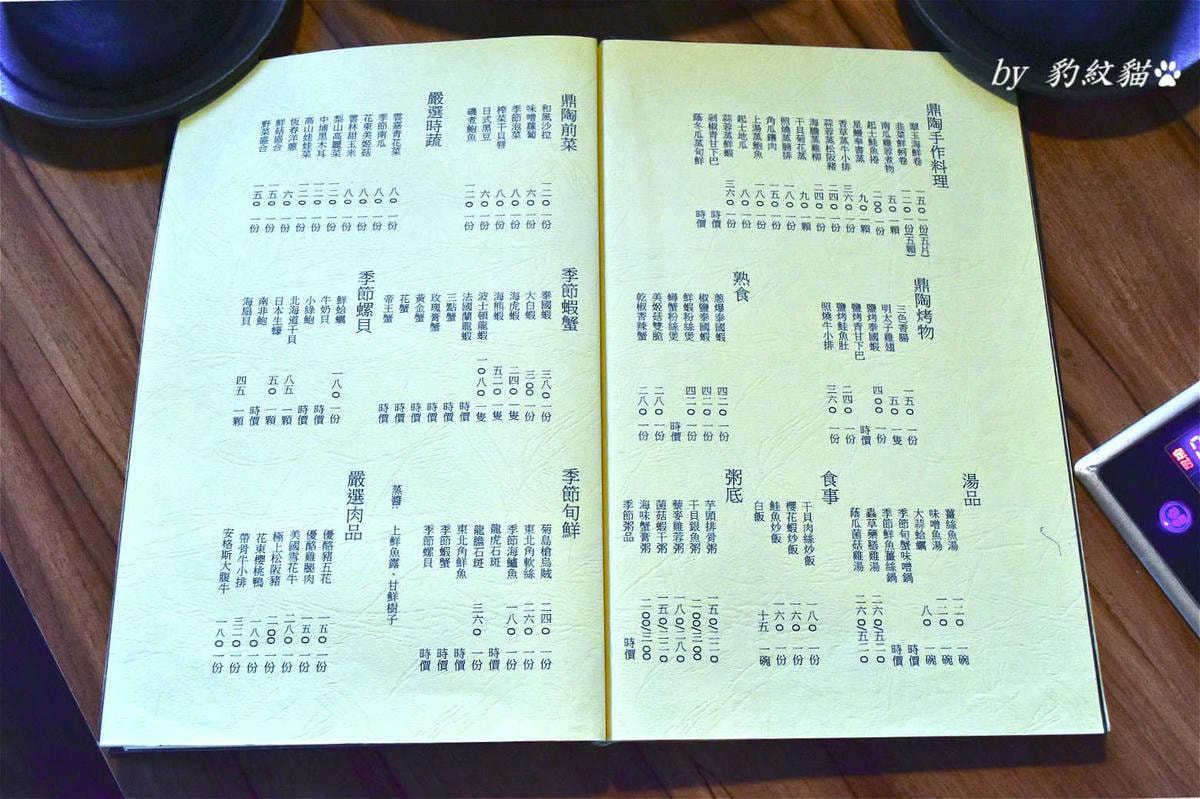 by 豹紋貓
鼎陶手作料理
翠玉海鮮卷 一五〇 一份(五片)
韭菜鮮蚵卷 一二〇 一份(五顆)
南瓜雞蓉煮物 五〇 一顆
起士鮭魚捲 二〇〇 一份
星鰻奉書蒸 九〇 一顆
香草蒸牛小排 三六〇 一份
蒜蓉蒸松阪豬 二四〇 一份
海膽蒸雞柳 二四〇 一份
干貝菊花蒸 九〇 一顆
照燒蒸腩排 一八〇 一份
角瓜鑲肉 一五〇 一份
上湯蒸鮑魚 一八〇 一份
起士地瓜 八〇 一份
蒜蓉蒸鮮蝦 三六〇 一份
剁椒青甘下巴 時價
蔭冬瓜蒸旬鮮 時價
鼎陶烤物
三色香腸 一五〇 一份
明太子雞翅 五〇 一隻
鹽烤泰國蝦 四〇〇 一份
鹽烤青甘下巴 時價
鹽烤鮭魚肚 二四〇 一份
照燒牛小排 三六〇 一份
熟食
蔥爆泰國蝦 四二〇 一份
椒鹽泰國蝦 四二〇 一份
鮮蝦粉絲煲 四二〇 一份
蟳蟹粉絲煲 時價
美姬菇雙脆 二八〇 一份
乾椒香辣蟹 二八〇 一份
湯品
薑絲魚湯 一二〇 一碗
味噌魚湯 一二〇 一碗
大蒜蛤蠣 八〇 一碗
季節旬蟹味噌鍋 時價
季節鮮魚薑絲鍋 時價
蟲草藥膳雞湯 二六〇/五二〇
蔭瓜菌菇雞湯 二六〇/五二〇
食事
干貝肉絲炒飯 一八〇 一份
櫻花蝦炒飯 一六〇 一份
鮭魚炒飯 一六〇 一份
白飯 十五 一碗
粥底
芋頭排骨粥 一五〇/二二〇
干貝銀魚粥 二〇〇/三〇〇
藜麥雞蓉粥 一八〇/二八〇
菌菇蝦干粥 一五〇/二二〇
海味蟹膏粥 二〇〇/三〇〇
季節粥品 時價
鼎陶前菜
和風沙拉 一二〇 一份
味噌蘿蔔 六〇 一份
季節泡菜 八〇 一份
榨菜干貝唇 八〇 一份
日式黑豆 六〇 一份
磯煮鮑魚 二二〇 一份
嚴選時蔬
雲嘉青花菜 八〇 一份
季節南瓜 八〇 一份
花東美姬菇 八〇 一份
雲林甜玉米 八〇 一份
梨山高麗菜 一二〇 一份
中埔黑木耳 一二〇 一份
高山娃娃菜 一二〇 一份
恆春洋蔥 六〇 一份
鮮菇盛合 一五〇 一份
野菜盛合 一五〇 一份
季節蝦蟹
泰國蝦 三八〇 一份
大白蝦 三〇〇 一份
海虎蝦 二四〇 一隻
海熊蝦 五二〇 一隻
波士頓龍蝦 一〇八〇 一隻
法國蘭龍蝦 時價
三點蟹 時價
玫瑰膏蟹 時價
黃金蟹 時價
花蟹 時價
帝王蟹 時價
季節螺貝
鮮蛤蠣 一八〇 一份
牛奶貝 時價
小綠鮑 時價
北海道干貝 八五 一顆
日本生蠔 五〇 一顆
南非鮑 時價
海扇貝 四五 一顆
季節旬鮮
菊島槍烏賊 二四〇 一份
東北角軟絲 二六〇 一份
季節海鱸魚 一八〇 一份
龍虎石斑 時價
龍膽石斑 三六〇 一份
東北角鮮魚 時價
季節鮮蟹 時價
季節螺貝 時價
蒸醬: 上鮮魚露、甘鮮樹子
嚴選肉品
優酪豬五花 一五〇 一份
優酪雞腿肉 一五〇 一份
美國雪花牛 二八〇 一份
極上松阪豬 二〇〇 一份
花東櫻桃鴨 一八〇 一份
帶骨牛小排 三二〇 一份
安格斯大腹牛 一八〇 一份